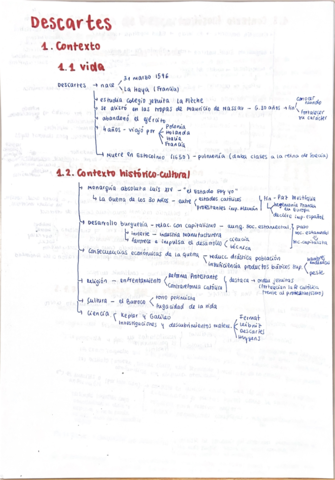 Descartes
1. Contexto
1.1 vida
DESCARTES → nace 31 marzo 1596
La Haya (Francia)
estudia colegio jesuita: La Flèche
se alistó en las tropas de Mauricio de Nassau - G. 30 años
conocer mundo
fortalecer su carácter
abandonó el ejército
9 años - viajó por Polonia
Holanda
Italia
Francia
Muere en Estocolmo (1650) - pulmonía (daba clases a la reina de Suecia)
1.2. Contexto histórico-cultural
monarquía absoluta Luis XIV - "el Estado soy yo"
La Guerra de los 30 años - entre estados católicos
protestantes imp. alemán
Fin - Paz Westfalia
hegemonía Francia en Europa
declive imp. Español
Desarrollo burguesía - relac. con capitalismo - aung. soc. estamental
paso soc. estamental
soc. capitalista
invierte - industria manufacturera
fomenta e impulsa el desarrollo ciencia
técnica
consecuencias económicas de la guerra reducc. drástica población
insuficiencia productos básicos imp.
peste
Religión - enfrentamiento Reforma Protestante
Contrarreforma Católica
destaca → orden jesuitas
(fortalecían la fe católica frente al protestantismo)
cultura - el Barroco tono pesimista
fugacidad de la vida
ciencia Kepler y Galileo
investigaciones y descubrimientos matem.
Fermat
Leibniz
Descartes
Huygens